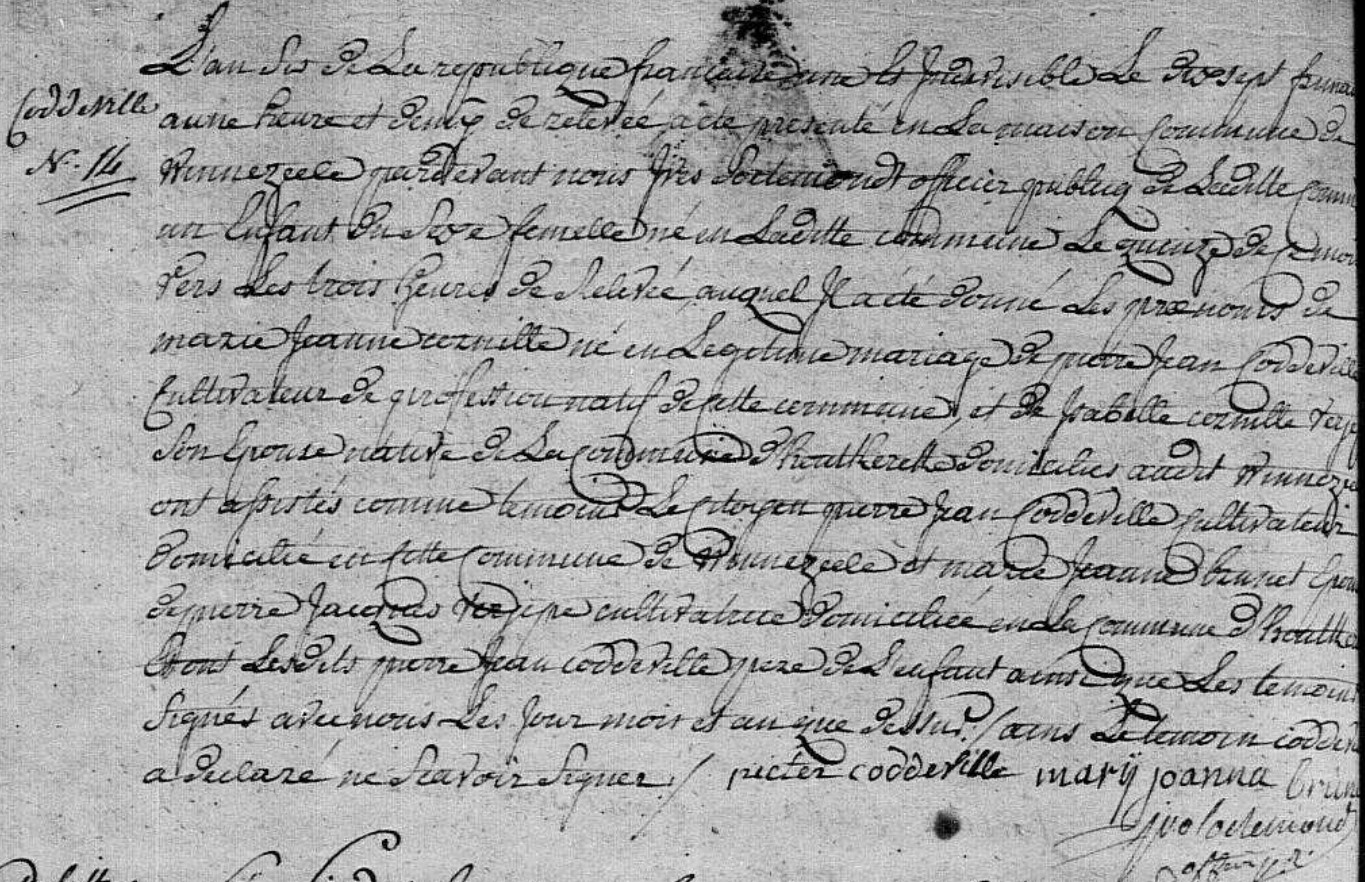 Coddeville
N. 14
L'an six de La republique francaise une et Jndivisible Le dixsept frimai
a une heure et demÿ de relevée acte presenté en La maison Commune de
Winnezeele pardevant nous Jves officier publicq de Laditte Commu
un Enfant du Sexe femelle né en Laditte commune Le quinze de ce mois
vers Les trois heures de Relevée auquel Jl a été donné Les prenoms de
marie Jeanne cornille né en Legitime mariage de pierre Jean Coddeville
Cultivateur de profession natif de cette commune, et de Jsabelle cornille
Son Epouse native de La commune d'houtkercke domiciliés audit Winneze
ont assistés comme temoins Le Citoyen pierre Jean Coddeville Cultivateur
domicilié en cette Commune de Winnezeele et marie Jeanne brunet Epou
de pierre Jacques cultivatrice domiciliée en La Commune d'houtke
Et ont Lesdits pierre Jean coddeville pere de L'enfant ainsi que Les temoins
Signés avec nous Les Jour mois et an que dessus / Le temoin coddevi
a declaré ne Scavoir Signer / pieter coddeville marÿ joanna brune
jvo